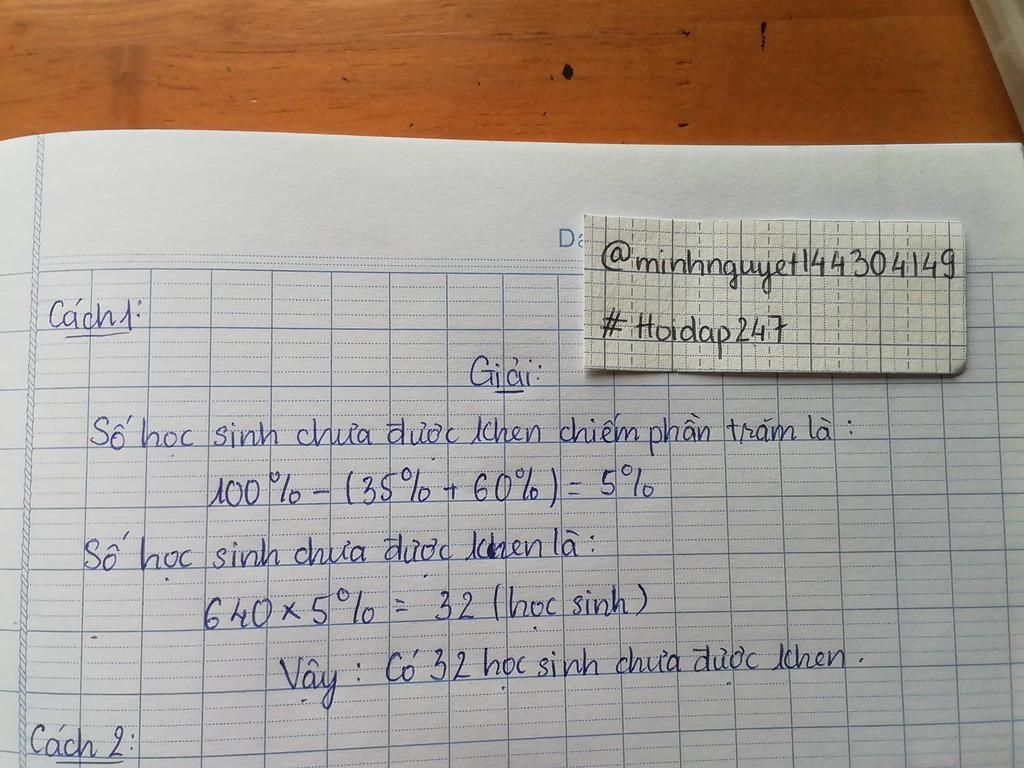 @minhnguyet144304149
# Hoidap247
Cách 1:
Giải:
Số học sinh chưa được khen chiếm phần trăm là:
100% - (35% + 60%) = 5%
Số học sinh chưa được khen là:
640 x 5% = 32 (học sinh)
Vậy: Có 32 học sinh chưa được khen.
Cách 2: